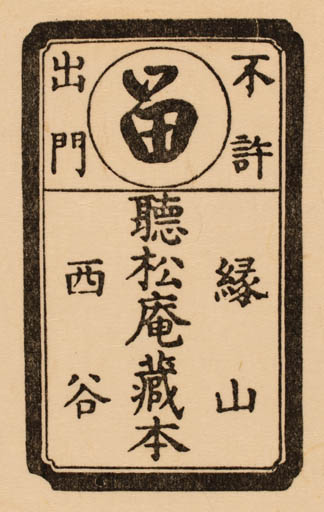 不許
出門
緣山
聽松庵藏本
西谷